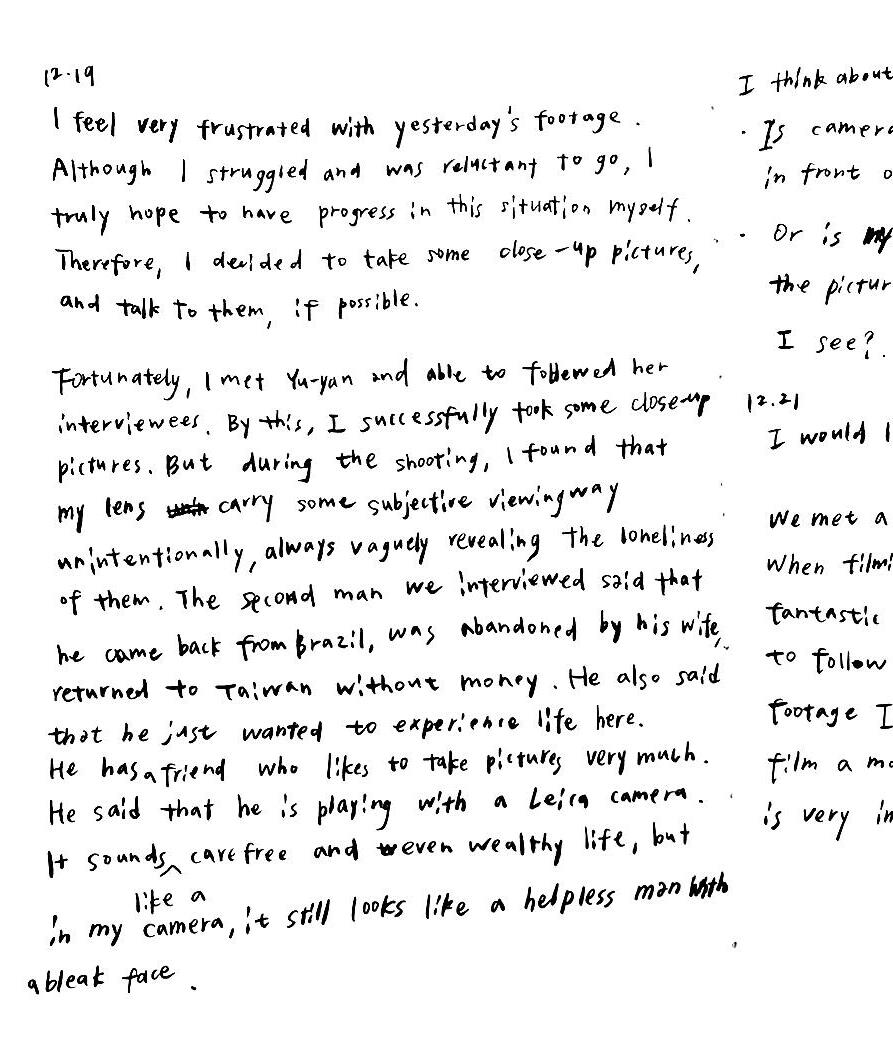 12.19
I feel very frustrated with yesterday's footage.
Although I struggled and was reluctant to go, I
truly hope to have progress in this situation myself.
Therefore, I decided to take some close-up pictures,
and talk to them, if possible.
Fortunately, I met Yu-yan and able to followed her
interviewees. By this, I successfully took some close-up
pictures. But during the shooting, I found that
my lens carry some subjective viewing way
unintentionally, always vaguely revealing the loneliness
of them. The second man we interviewed said that
he came back from Brazil, was abandoned by his wife,
returned to Taiwan without money. He also said
that he just wanted to experience life here.
He has a friend who likes to take pictures very much.
He said that he is playing with a Leica camera.
It sounds like a carefree and even wealthy life, but
in my camera, it still looks like a helpless man with
a bleak face.
I think about
· Is camera
in front o
· Or is my
the pictur
I see?
12.21
I would l
We met a
When filmi
fantastic
to follow
footage I
film a mo
is very in